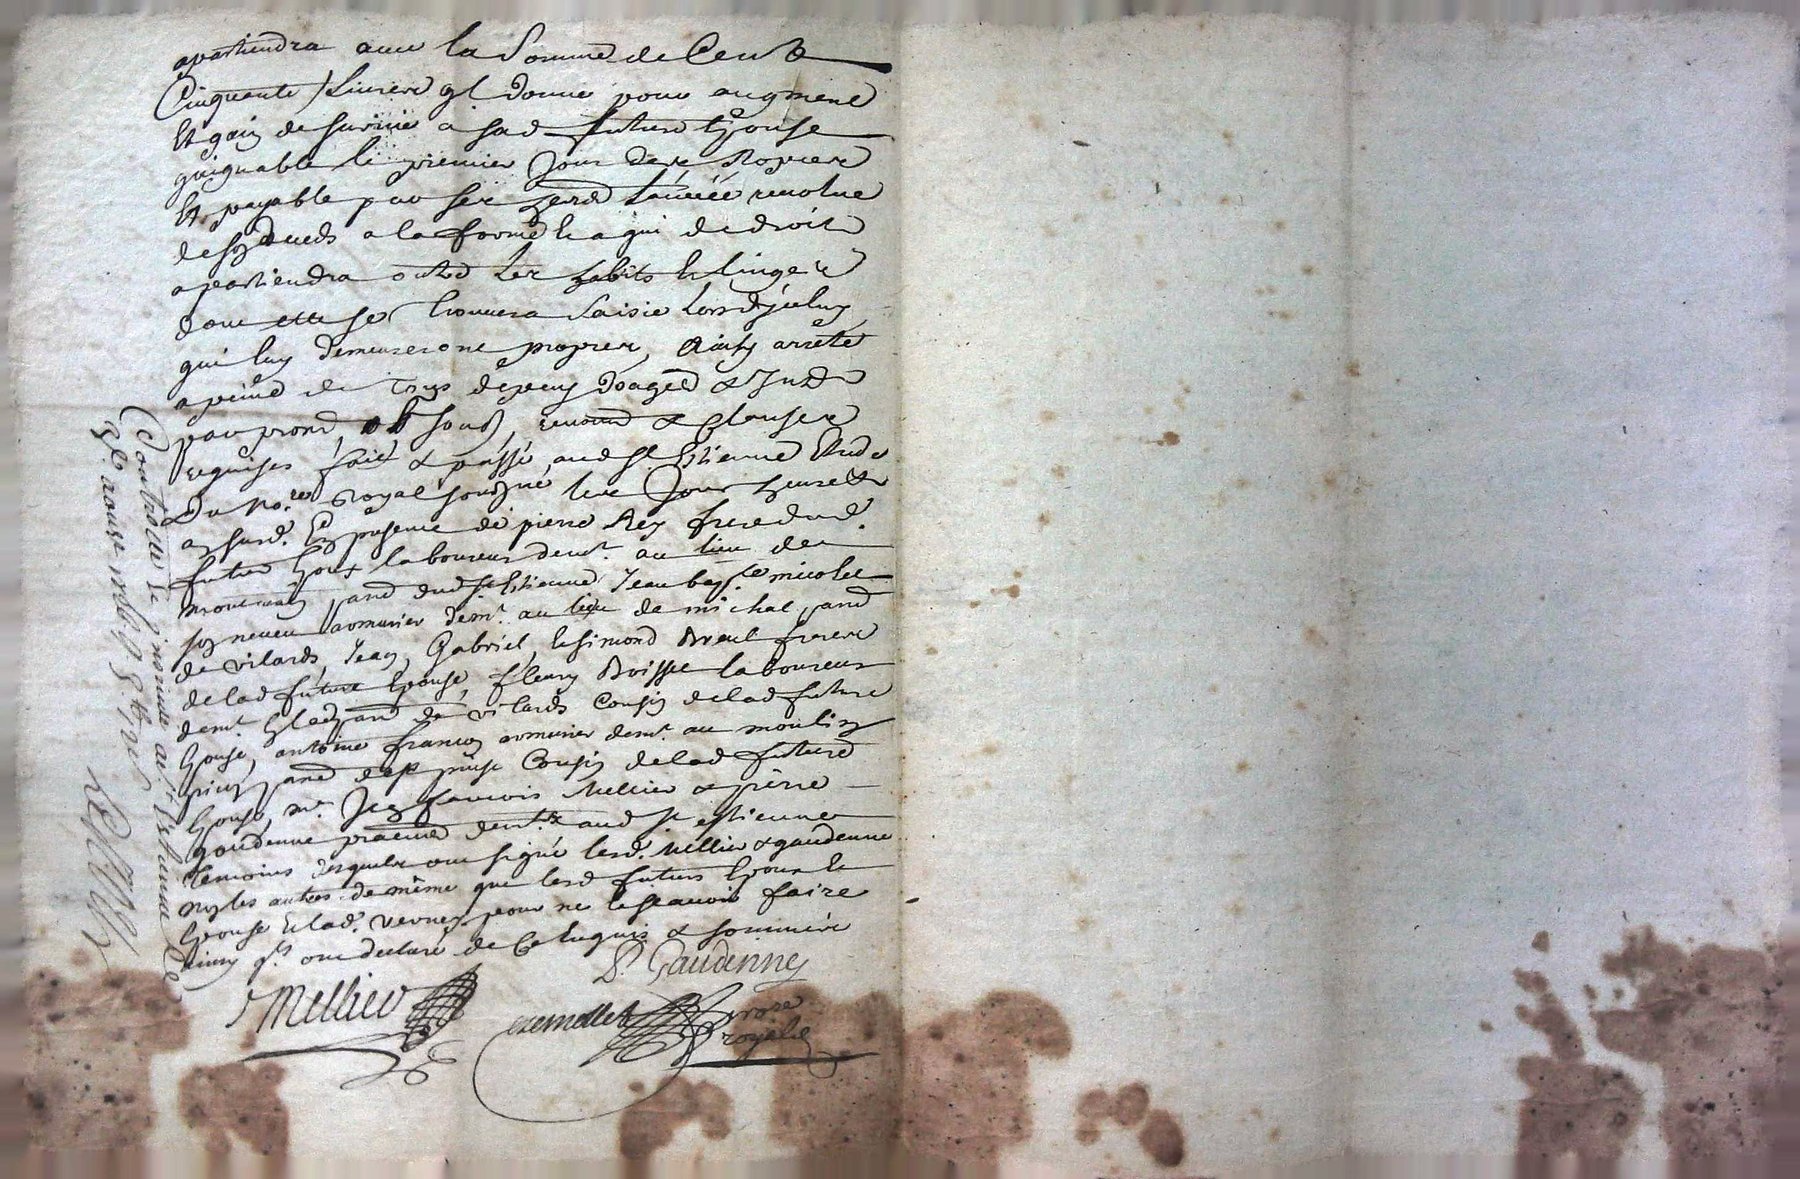 apartiendra avec la Somme de Cent
Cinquante Livres q'l donne pour augment
Et gain de survie a sad future Epouse
gaignable le premier Jour des Nopces
Et payable par ses her. l'année revolue
de son deceds a la forme et a qui de droit
apartiendra outre les habits et linges
dont elle se trouvera Saisie Lors d'jceluy
qui luy demeureront propres, Ainsy arreté
a peine de Tous depens domages & Int
par prom, ob soub, renon & clauses
requises fait & passé aud St Estienne Etude
du No.re Royal soussigné les Jour heure &
an susd. En presence de pierre Rey frere dud.
futur Epoux laboureur dem.t au lieu de
par dud St Estienne, Jean bap.te micolet
son neveu armurier dem.t au lieu de michal par
de vilards, Jean, Gabriel, et Simond Breul freres
de lad future Epouse, fleury Boissel laboureur
dem.t par de vilards Cousin de lad future
Epouse, antoine francoy armurier dem.t au moulin
par de Cousin de lad future
Epouse, m.e Jean francois Mellier & pierre
gaudenne praticiens dem.ts aud St estienne
temoins desquels ont signé lesd. Mellier & gaudenne
non les autres de même que lesd futurs Epoux et
Epouse Et lad. verney pour ne le scavoir faire
ainsy q'ls ont declaré de ce Enquis & sommés
P. Gaudenne
Mellier
royal
Controllé et insinué a St Estienne le
aoust